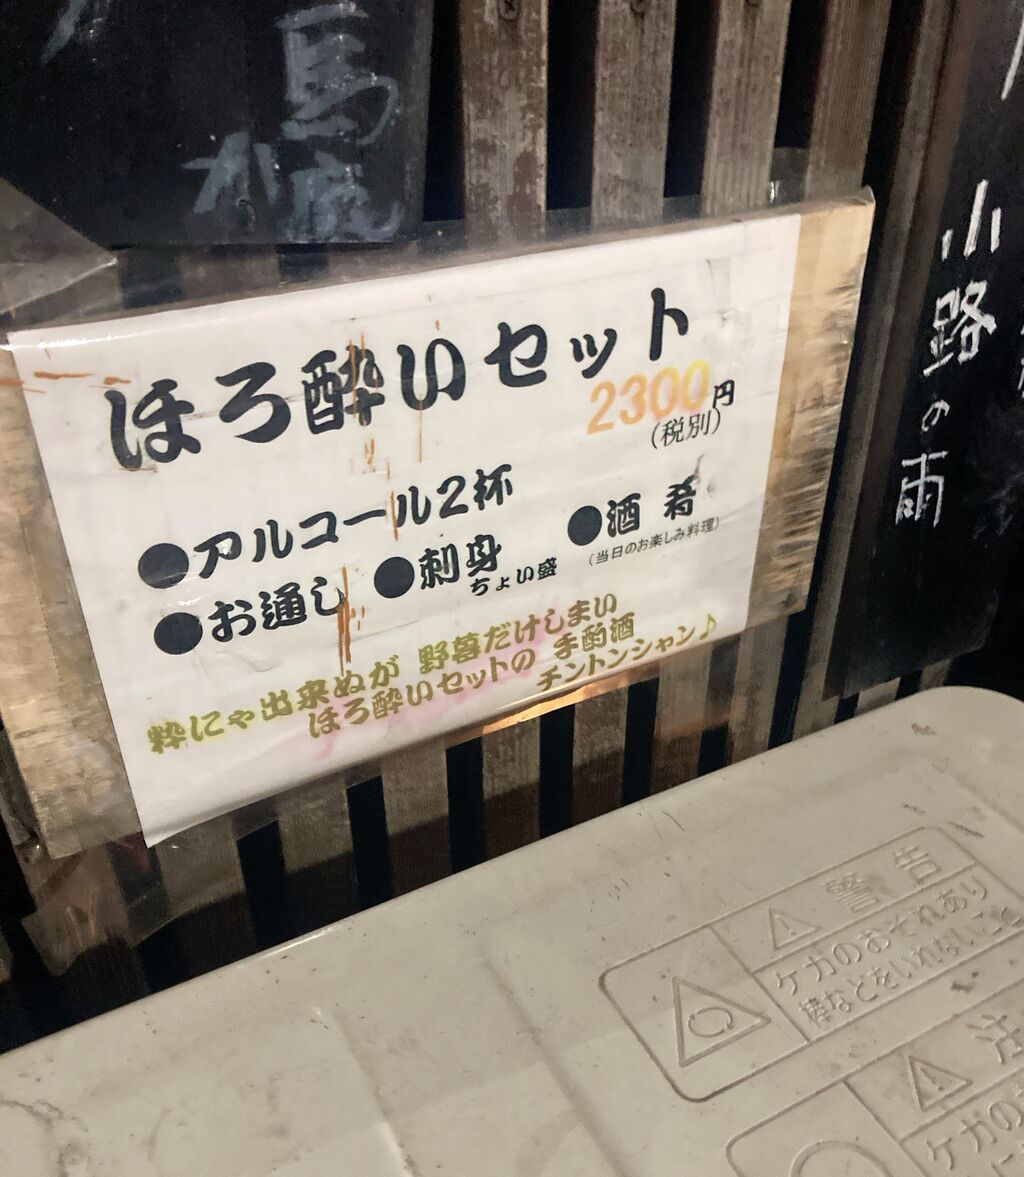 馬
小路の雨
ほろ酔いセット
2300円
(税別)
●アルコール2杯
●お通し ●刺身ちょい盛 ●酒肴
(当日のお楽しみ料理)
粋にゃ出来ぬが 野暮だけしまい
ほろ酔いセットの 手酌酒
チントンシャン♪
警告
ケガのおそれあり
棒などをいれないこと
注
ケガの